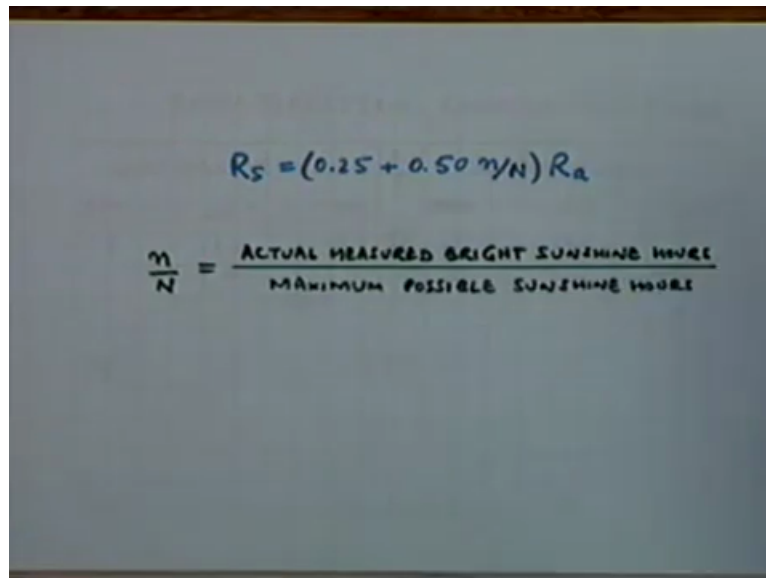 Rs = (0.25 + 0.50 n/N) Ra
n/N = ACTUAL MEASURED BRIGHT SUNSHINE HOURS / MAXIMUM POSSIBLE SUNSHINE HOURS